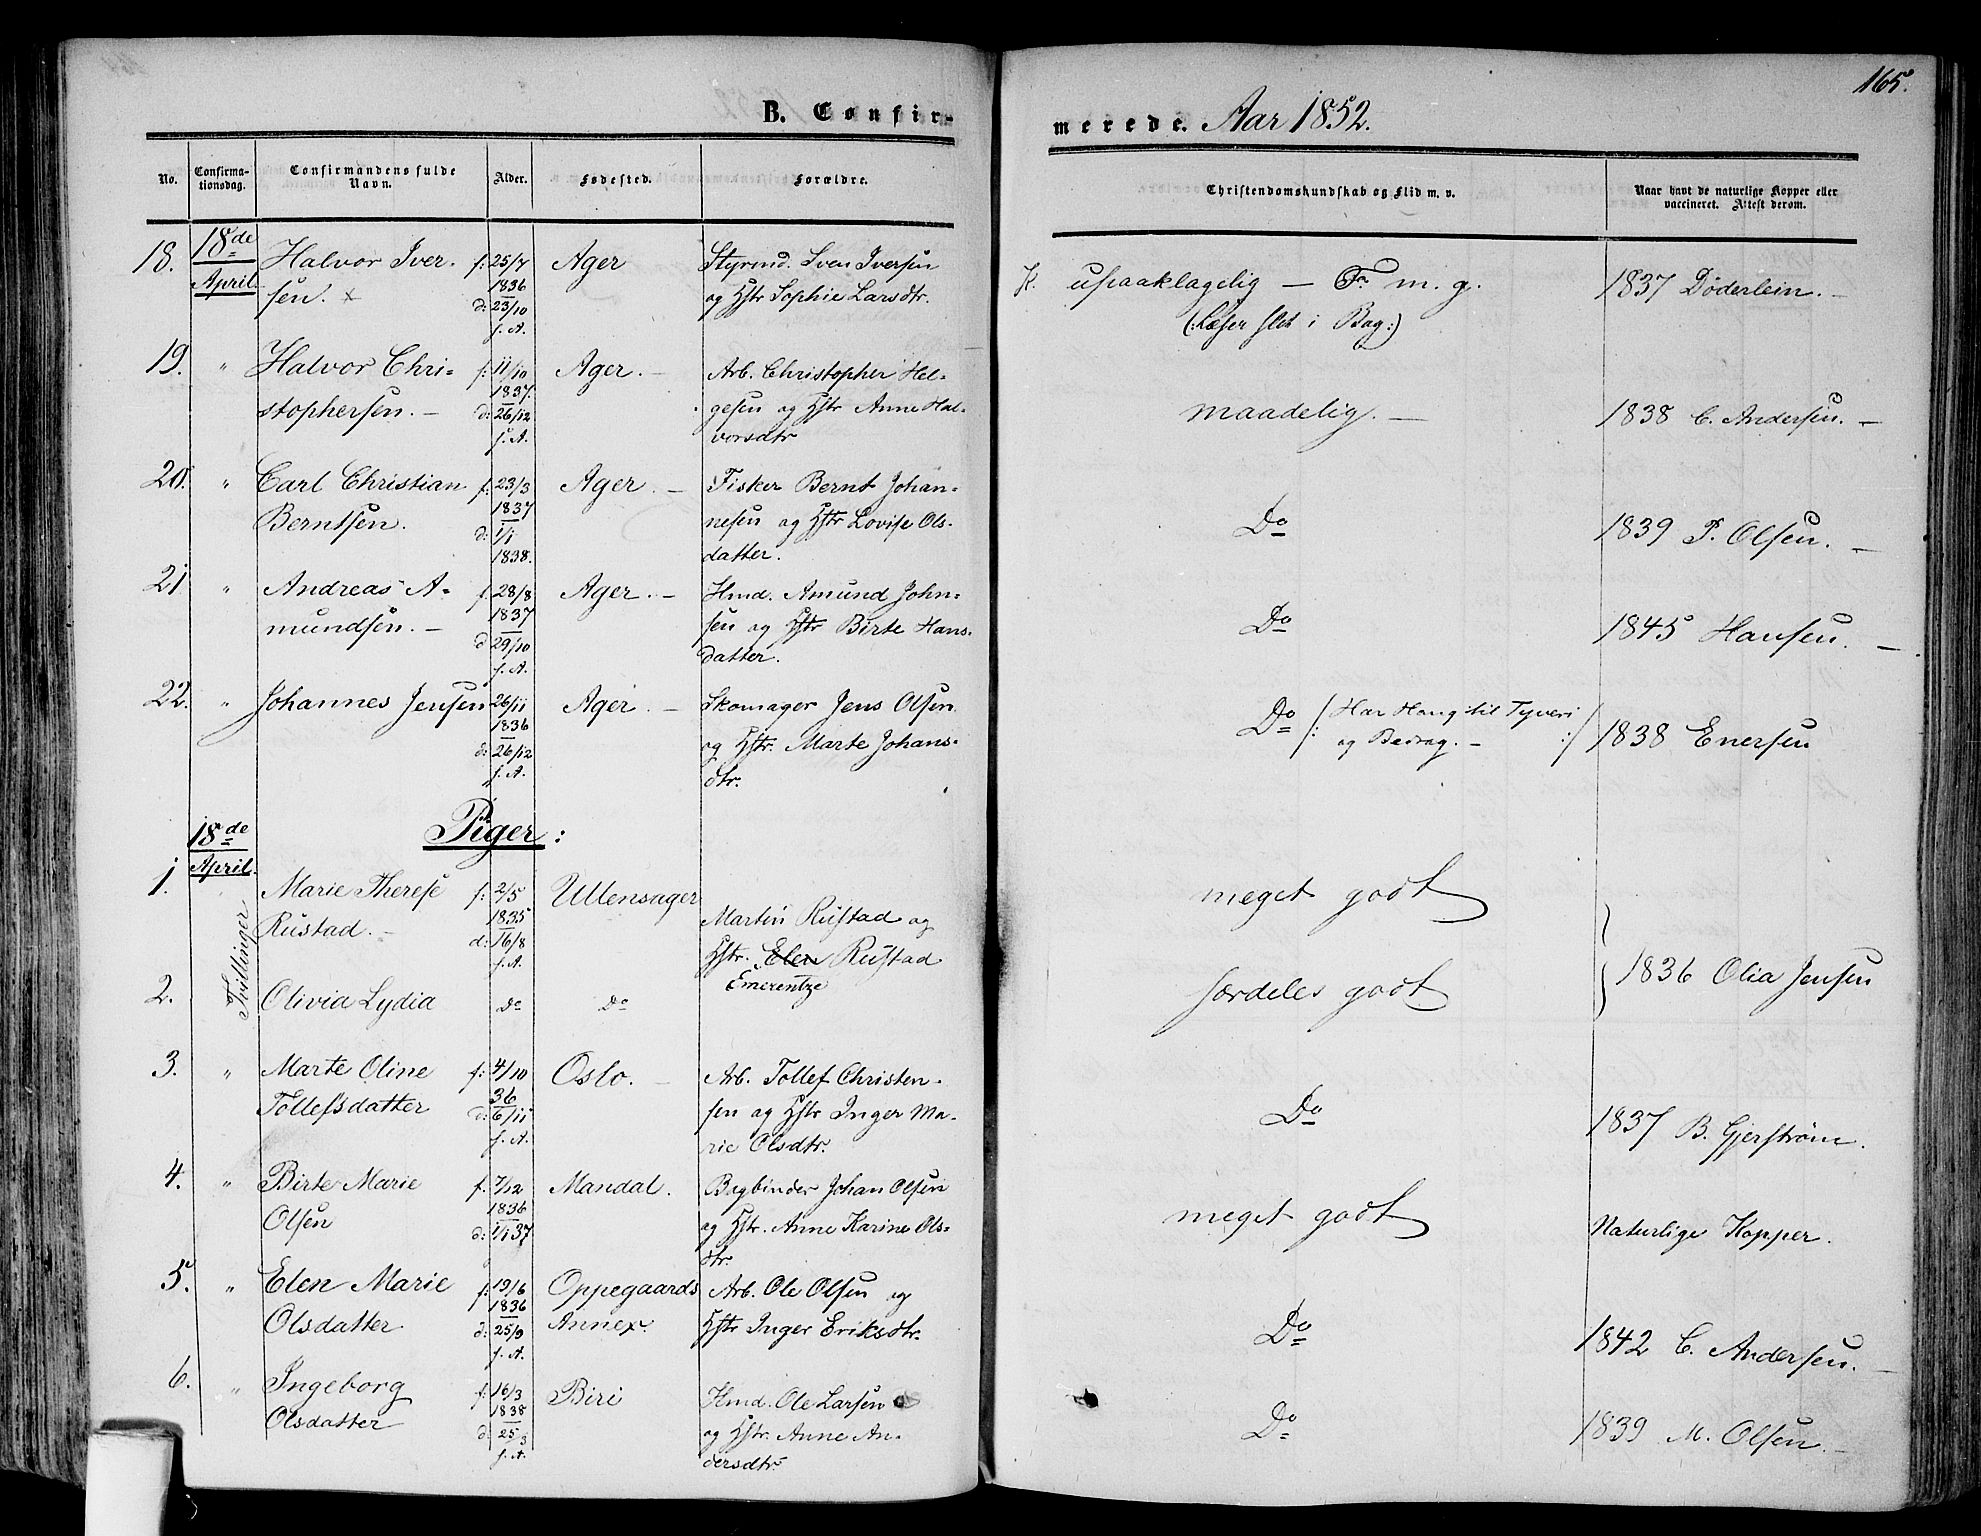 165.
B. Confir-
merede. Aar 1852.
No.
Confirma-
tionsdag.
Confirmandens fulde
Navn.
Alder.
Fødested.
Forældre.
Christendomskundskab og Flid m. v.
Naar havt de naturlige Kopper eller
vaccineret. Attest derom.
18. 18de Halvor Iver- f: 25/7 Ager Styrmd. Sven Iversen K. upaaklagelig — F. m. g. 1837 Döderlein. —
April. sen. x 1836 og Hstr Sophie Larsdtr. (:Læser slet i Bog:)
d: 23/10
s. A.
19. " Halvor Chri- f: 11/10 Ager. — Arb. Christopher Hel- maadelig. — 1838 C. Andersen. —
stophersen. — 1837. gesen og Hstr Anne Hal-
d: 26/12 vorsdtr
s. A.
20. " Carl Christian f: 23/3 Ager. — Fisker Bernt Johan- Do 1839 P. Olsen. —
Berntsen. 1837 nesen og Hstr Lovise Ols-
d: 1/1 datter.
1838.
21 " Andreas A- f: 28/8 Ager. — Hmd. Amund John- Do 1845 Hansen. —
mundsen. — 1837 sen og Hstr Birte Hans-
d: 29/10 datter.
s. A.
22. " Johannes Jensen 26/11 Ager. — Skomager Jens Olsen Do /: Har Hang til Tyveri 1838 Enersen
1836 og Hstr. Marte Johans- og Bedrag. — :/
d: 26/12 dtr.
s. A.
18de Piger:
April.
1. Marie Therese f: 2/5 Ullensager Martin Rustad og meget godt
Rustad. — 1835 Hstr. Elen Rustad
d: 16/8 Emerentze
s. A.
Tvillinger
1836 Olia Jensen
2. Olivia Lydia Do Do særdeles godt
3. " Marte Oline f: 4/10 Oslo. — Arb. Tollef Christen- Do 1837 B. Gjerstrøm.
Tollefsdatter 36 sen og Hstr Inger Ma-
d: 6/11 rie Olsdtr.
s. A.
4. " Birte Marie f. 7/12 Mandal. Bogbinder Johan Olsen meget godt Naturlige Kopper.
Olsen 1836 og Hstr. Anne Karine Ols-
d: 1/1 37 dtr.
5. " Elen Marie f: 19/6 Oppegaards Arb. Ole Olsen og Do 1842 C. Andersen. —
Olsdatter 1836 Annex. Hstr Inger Eriksdtr.
d: 25/9
s. A.
6. " Ingeborg f: 16/3 Biri Hmd. Ole Larsen Do 1839 M. Olsen. —
Olsdatter 1838 og Hstr. Anne An-
d: 25/3 dersdtr.
s. A.